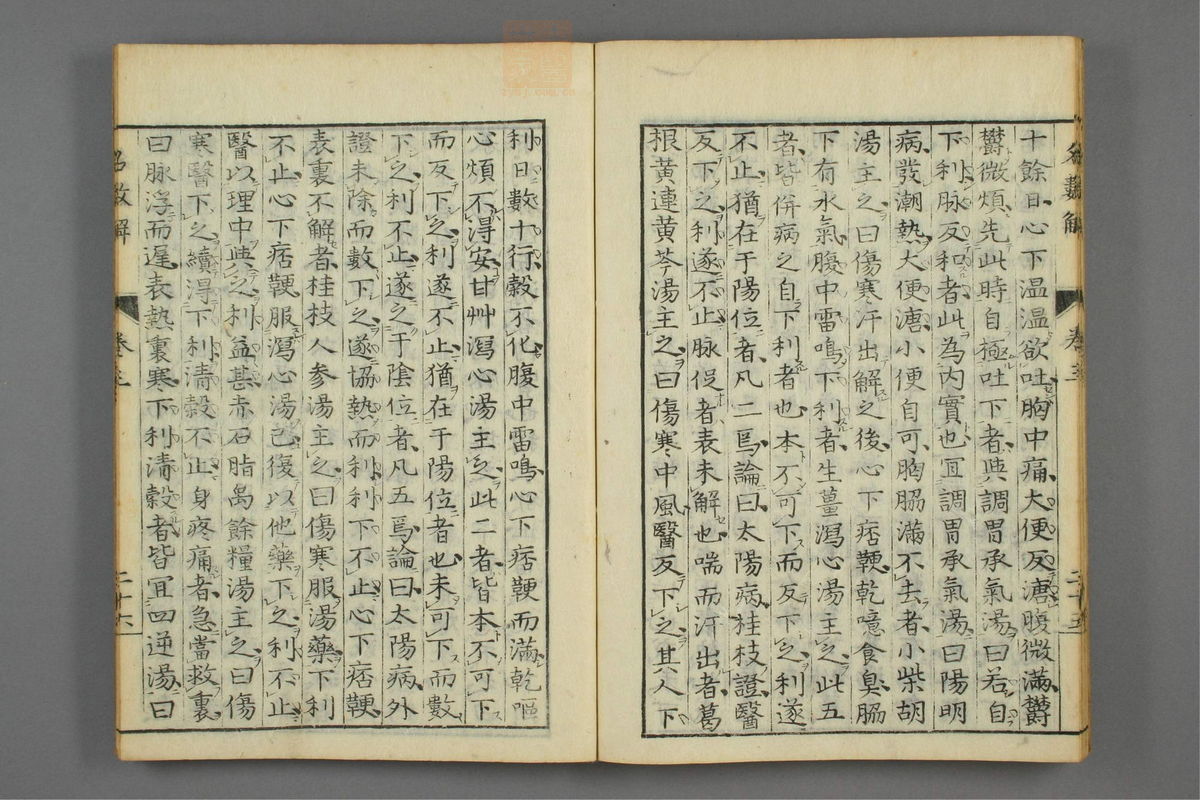 十餘日心下温温欲吐胸中痛大便反溏腹微滿欝
欝微煩先此時自極吐下者與調胃承氣湯曰若自
下利脉反和者此為内實也宜調胃承氣湯曰陽明
病發潮熱大便溏小便自可胸脇滿不去者小柴胡
湯主之曰傷寒汗出解之後心下痞鞕乾噫食臭脇
下有水氣腹中雷鳴下利者生薑瀉心湯主之此五
者皆併病之自下利者也本不可下而反下之利遂
不止猶在于陽位者凡二焉論曰太陽病桂枝證醫
反下之利遂不止脉促者表未解也喘而汗出者葛
根黄連黄芩湯主之曰傷寒中風醫反下之其人下
利日數十行穀不化腹中雷鳴心下痞鞕而滿乾嘔
心煩不得安甘艸瀉心湯主之此二者皆本不可下
而反下之利遂不止猶在于陽位者也未可下而數
下之利不止遂之于陰位者凡五焉論曰太陽病外
證未除而數下之遂協熱而利利下不止心下痞鞕
表裏不解者桂枝人参湯主之曰傷寒服湯藥下利
不止心下痞鞕服瀉心湯已復以他藥下之利不止
醫以理中與之利益甚赤石脂禹餘糧湯主之曰傷
寒醫下之續得下利清穀不止身疼痛者急當救裏
曰脉浮而遲表熱裏寒下利清穀者皆宜四逆湯曰
名數解
卷之三
二十五
名數解
二十六